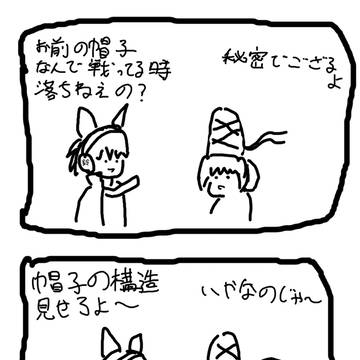 お前の帽子
なんで戦ってる時
落ちねえの？
秘密でござる
よ
帽子の構造
見せろよ〜
いやなのじゃ〜